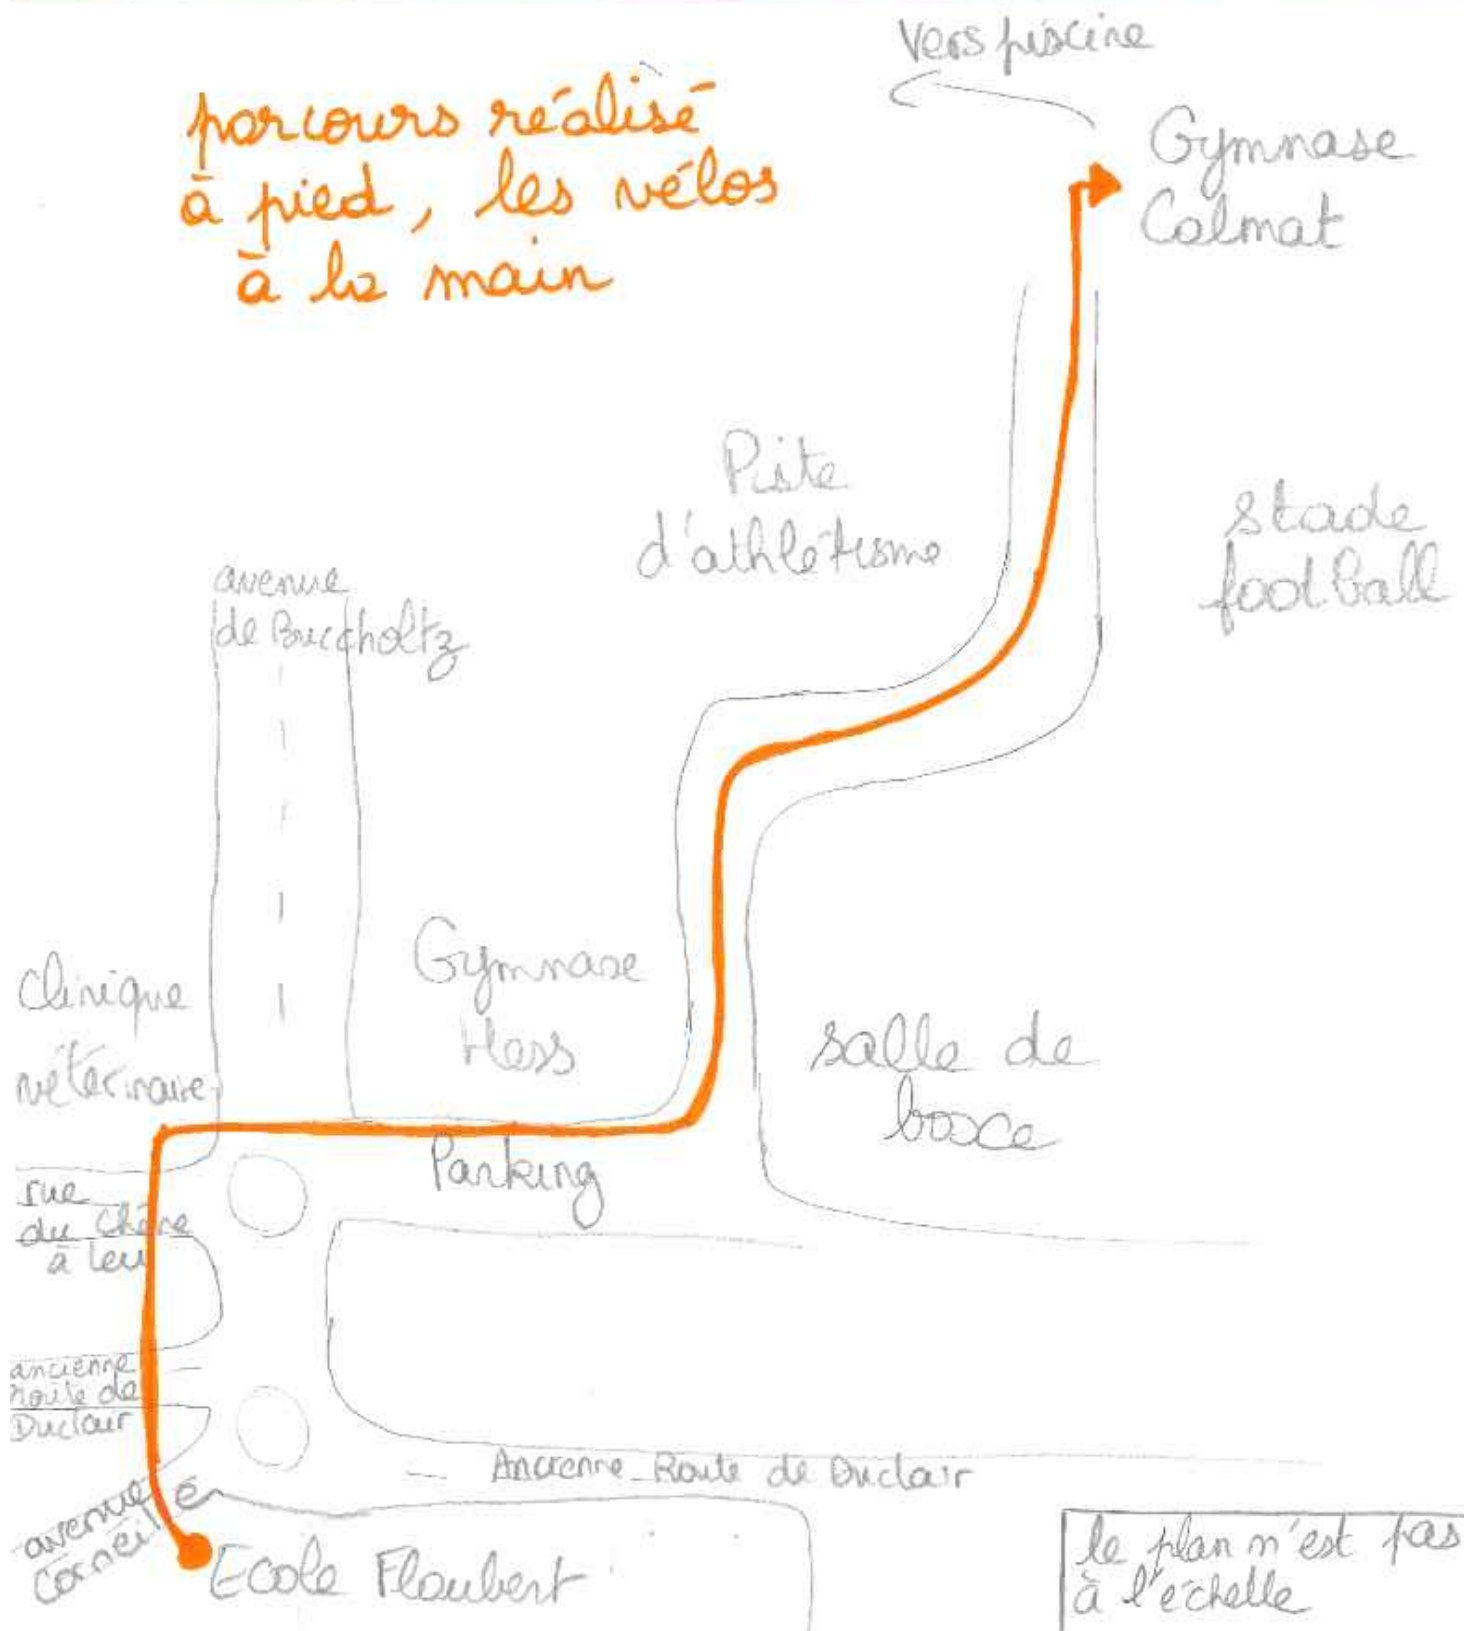 Vers piscine
parcours réalisé
à pied, les vélos
à la main
Gymnase
Colmat
Piste
d'athlétisme
stade
football
avenue
de Buccholtz
Clinique
vétérinaire
Gymnase
Hess
salle de
boxe
Parking
rue
du Chêne
à leu
ancienne
route de
Duclair
Ancienne Route de Duclair
avenue
corneille
Ecole Flaubert
le plan n'est pas
à l'échelle